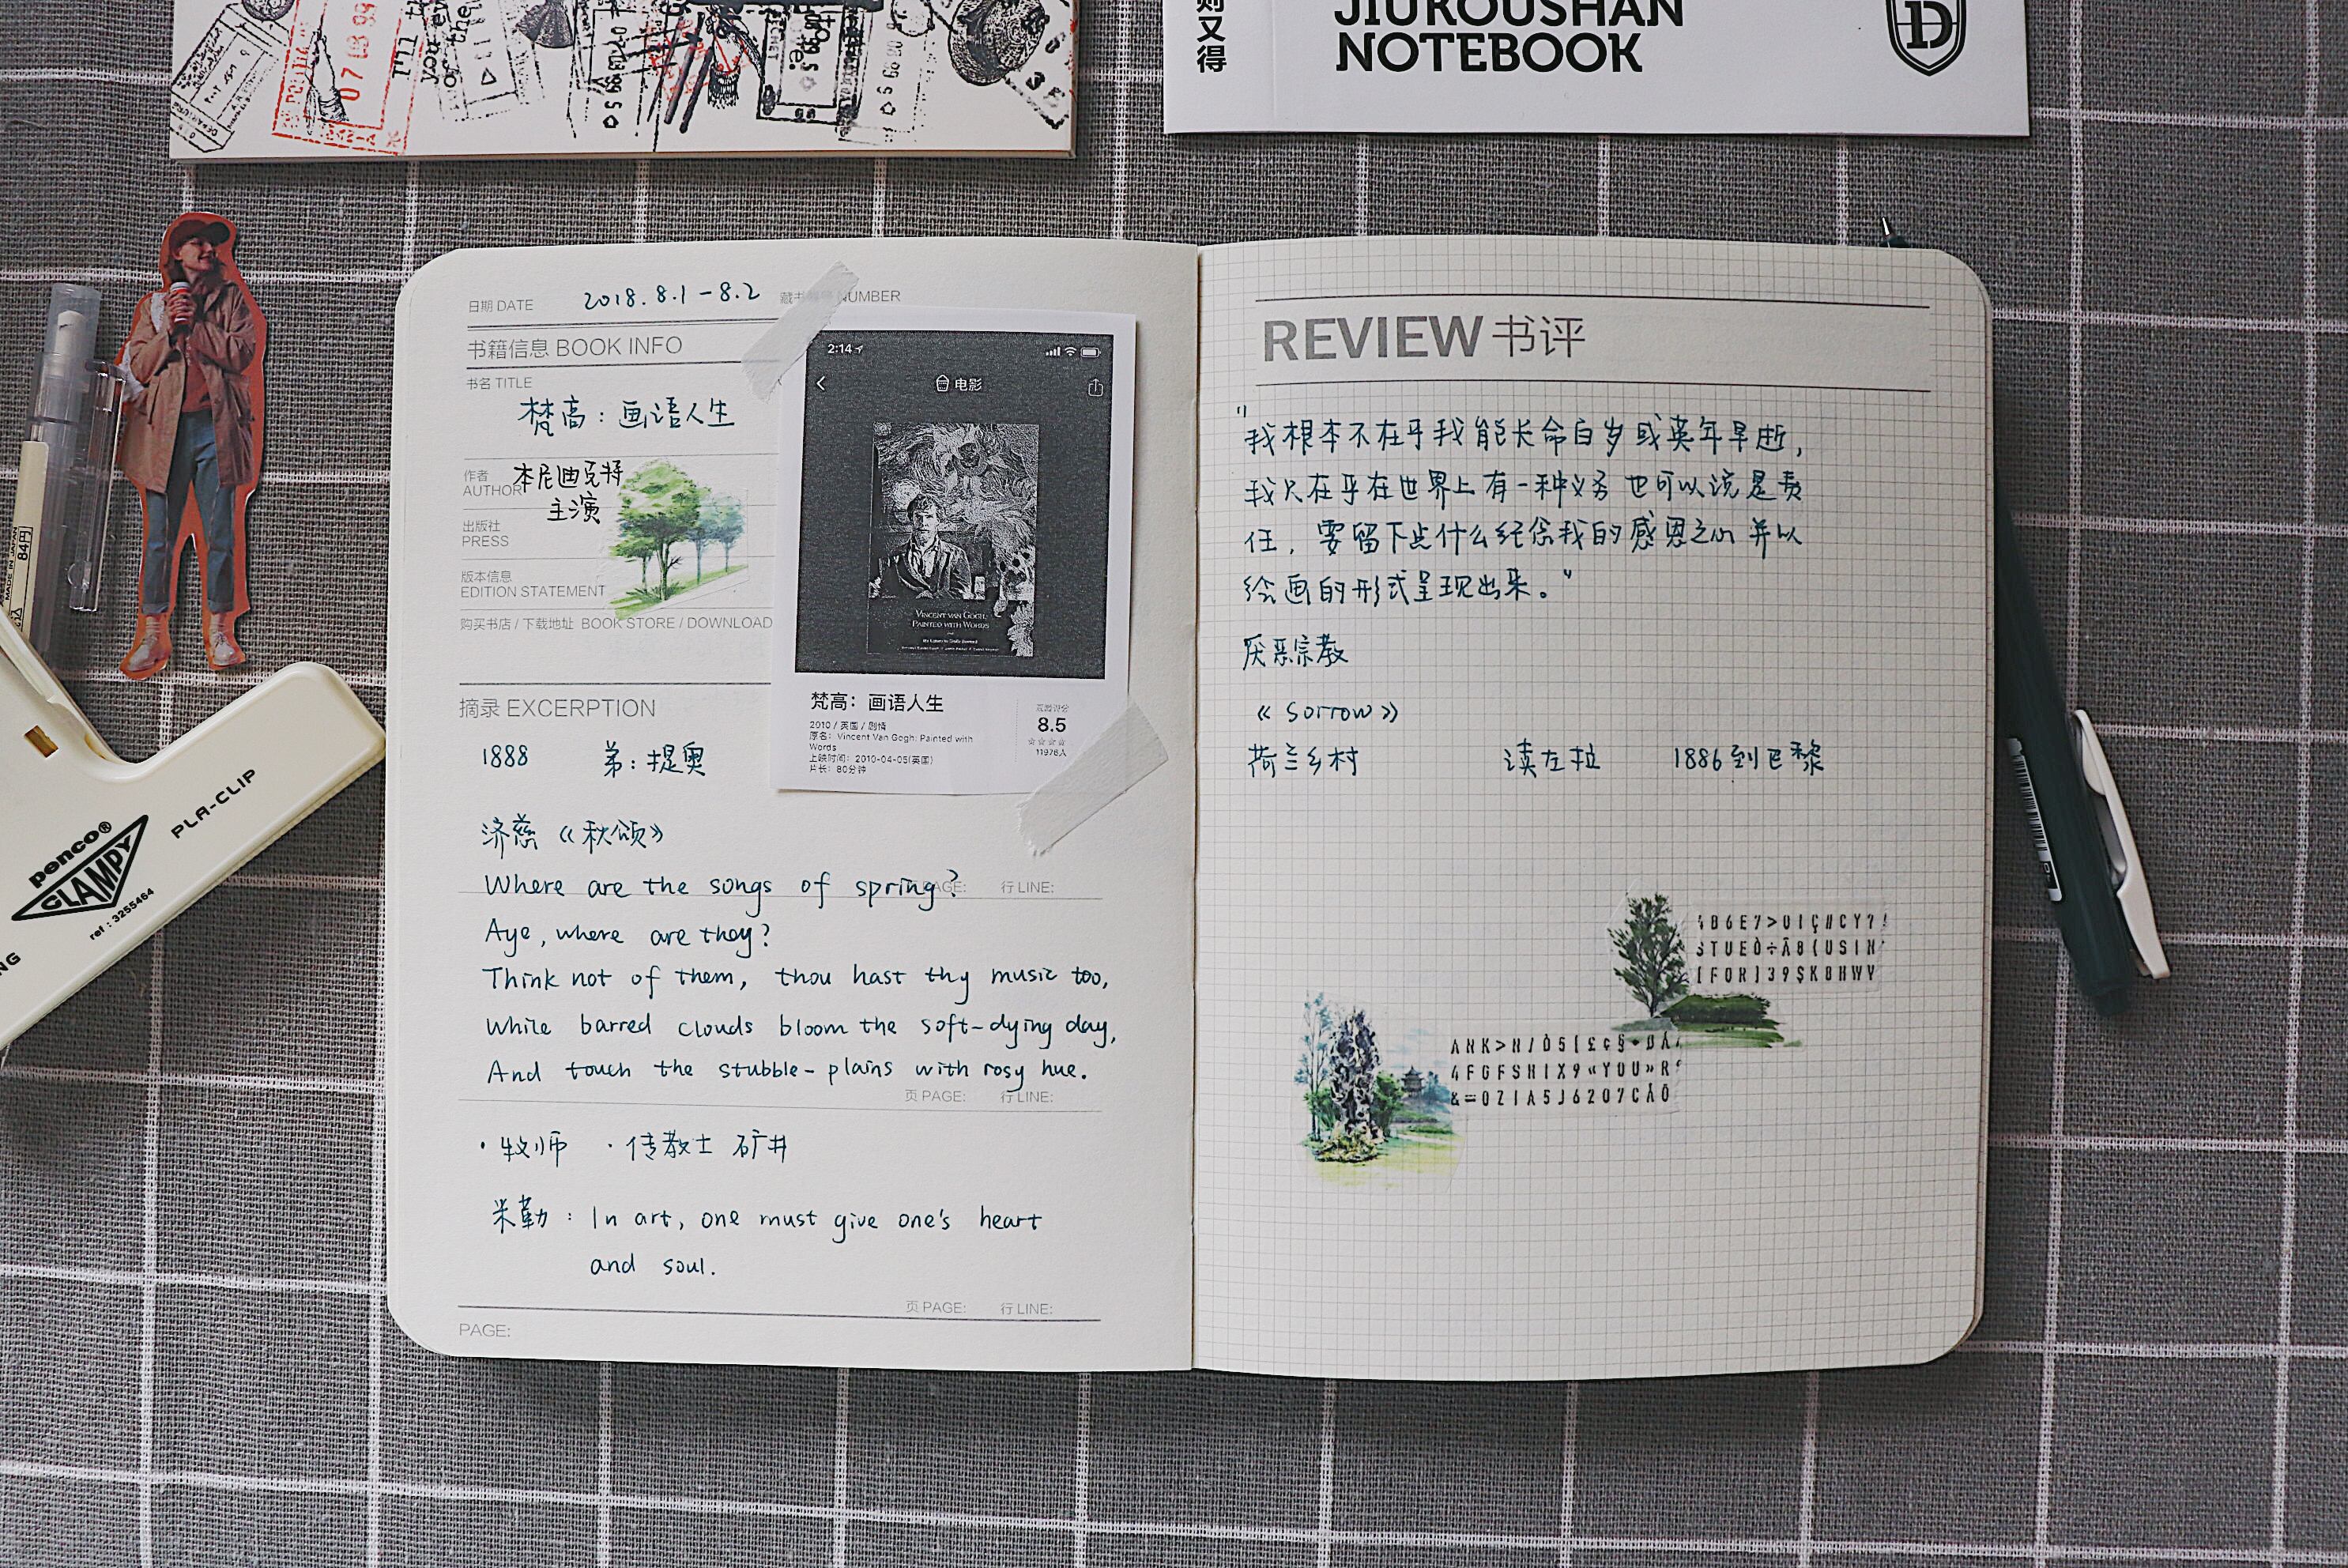 则又得
JIUKOUSHAN
NOTEBOOK
1D
日期 DATE 2018.8.1-8.2 NUMBER
书籍信息 BOOK INFO
书名 TITLE
梵高：画语人生
作者
AUTHOR
本尼迪克特
主演
出版社
PRESS
版本信息
EDITION STATEMENT
购买书店 / 下载地址 BOOK STORE / DOWNLOAD
2:14
电影
VINCENT VAN GOGH:
PAINTED WITH WORDS
梵高：画语人生
2010 / 英国 / 剧情
原名：Vincent Van Gogh: Painted with
Words
上映时间：2010-04-05(英国)
片长：80分钟
豆瓣评分
8.5
11976人
摘录 EXCERPTION
1888 弟：提奥
济慈《秋颂》
Where are the songs of spring?
PAGE: 行 LINE:
Aye, where are they?
Think not of them, thou hast thy music too,
While barred clouds bloom the soft-dying day,
And touch the stubble-plains with rosy hue.
页 PAGE: 行 LINE:
·牧师 ·传教士 矿井
米勒：In art, one must give one's heart
and soul.
页 PAGE: 行 LINE:
PAGE:
REVIEW 书评
"我根本不在乎我能长命百岁或英年早逝，
我只在乎在世界上有一种义务也可以说是责
任，要留下点什么纪念我的感恩之心并以
绘画的形式呈现出来。"
厌恶宗教
《Sorrow》
荷兰乡村 读左拉 1886到巴黎
penco®
CLAMPY
PLA-CLIP
ref : 3255464
MADE IN JAPAN
84円